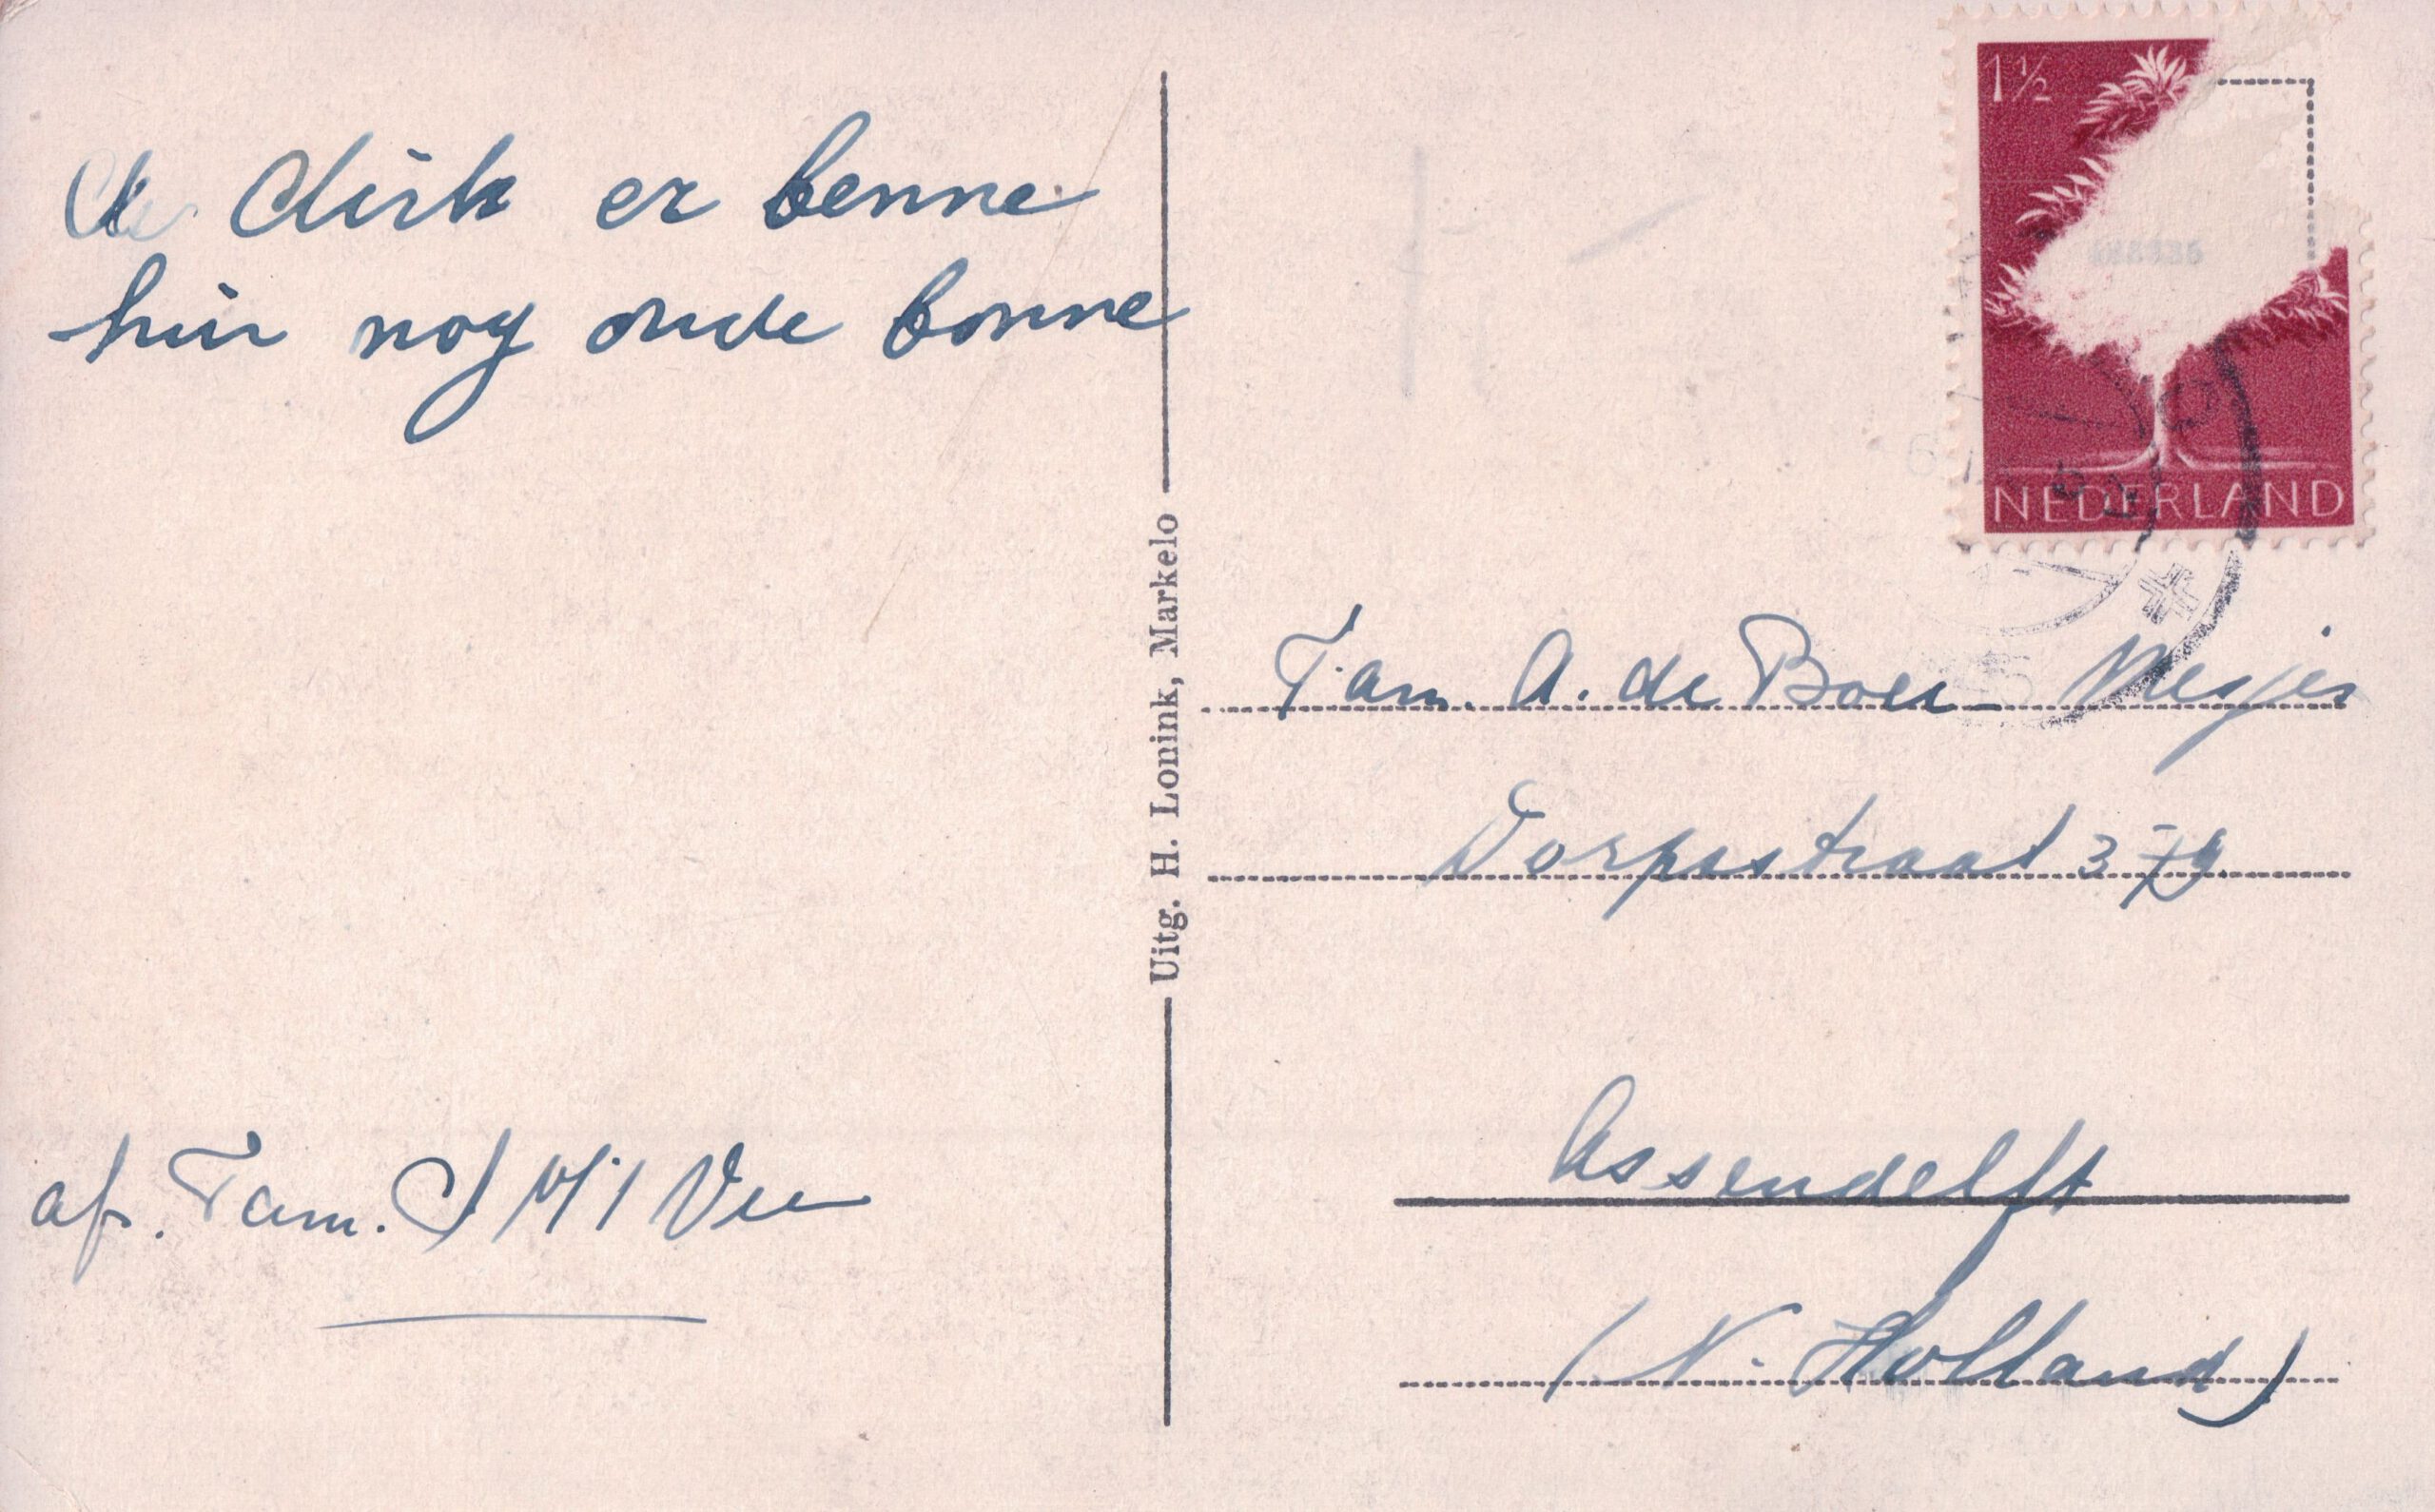 dirk er benne
hier nog oude bonne
af. Fam.
Uitg. H. Lonink, Markelo
1½
NEDERLAND
Fam. A. de Boer- Meijer
Dorpsstraat 379
Assendelft
(N. Holland)